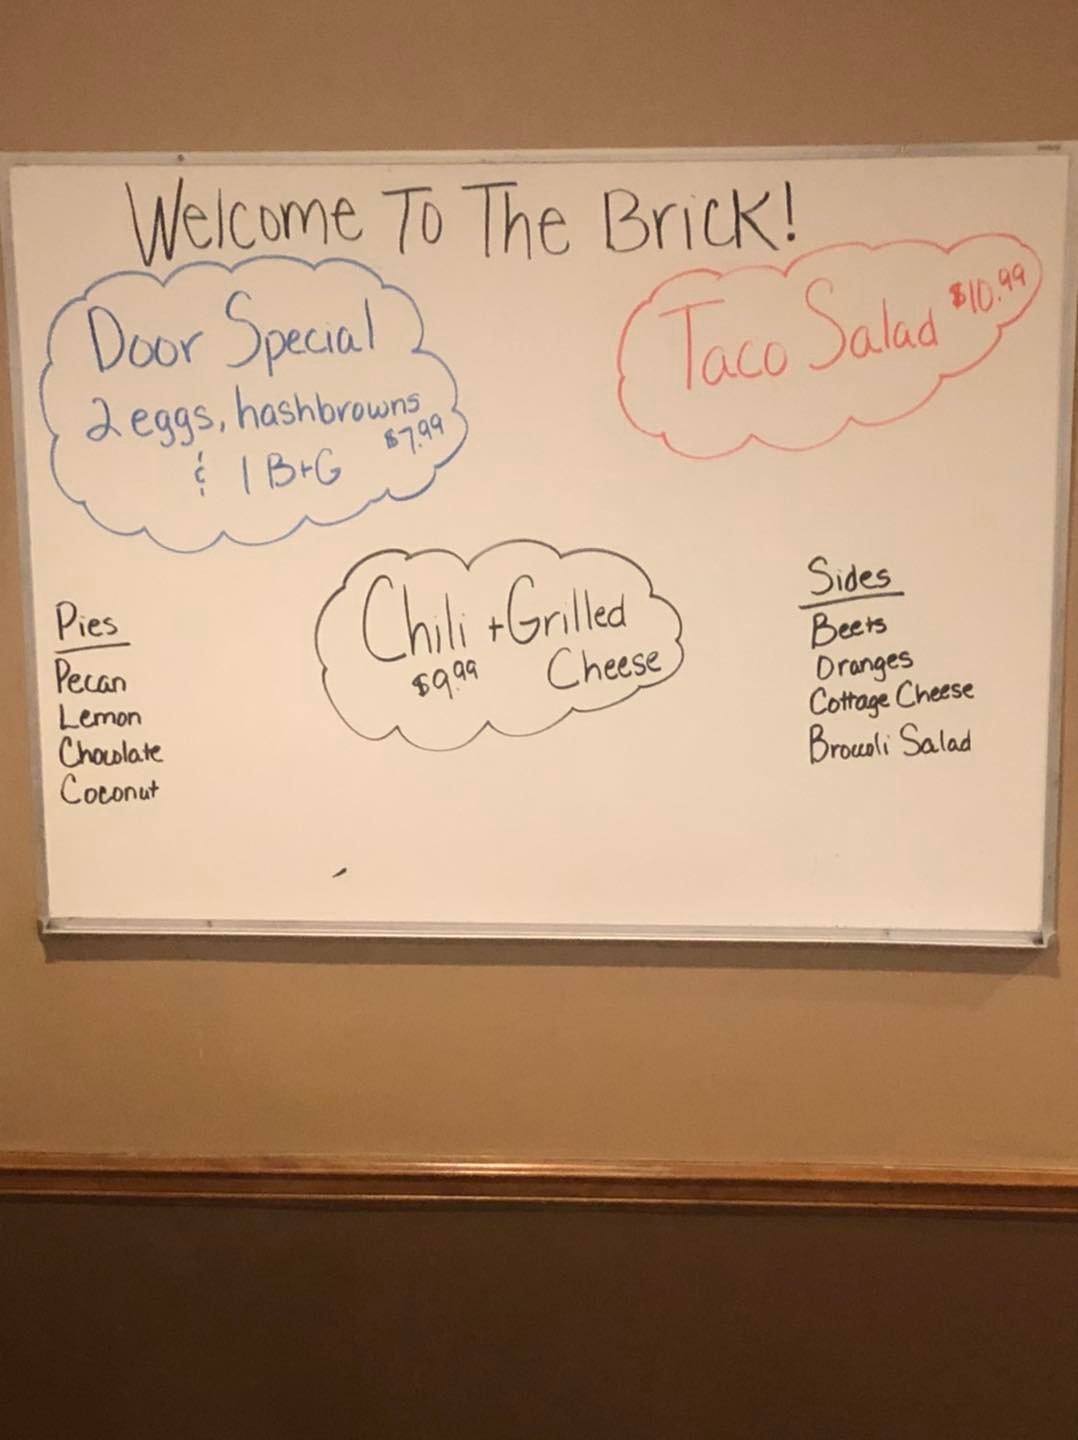 Welcome To The Brick!
Door Special
2 eggs, hashbrowns
$7.99
& 1 B+G
Taco Salad $10.99
Chili + Grilled
$9.99 Cheese
Pies
Pecan
Lemon
Chocolate
Coconut
Sides
Beets
Oranges
Cottage Cheese
Broccoli Salad